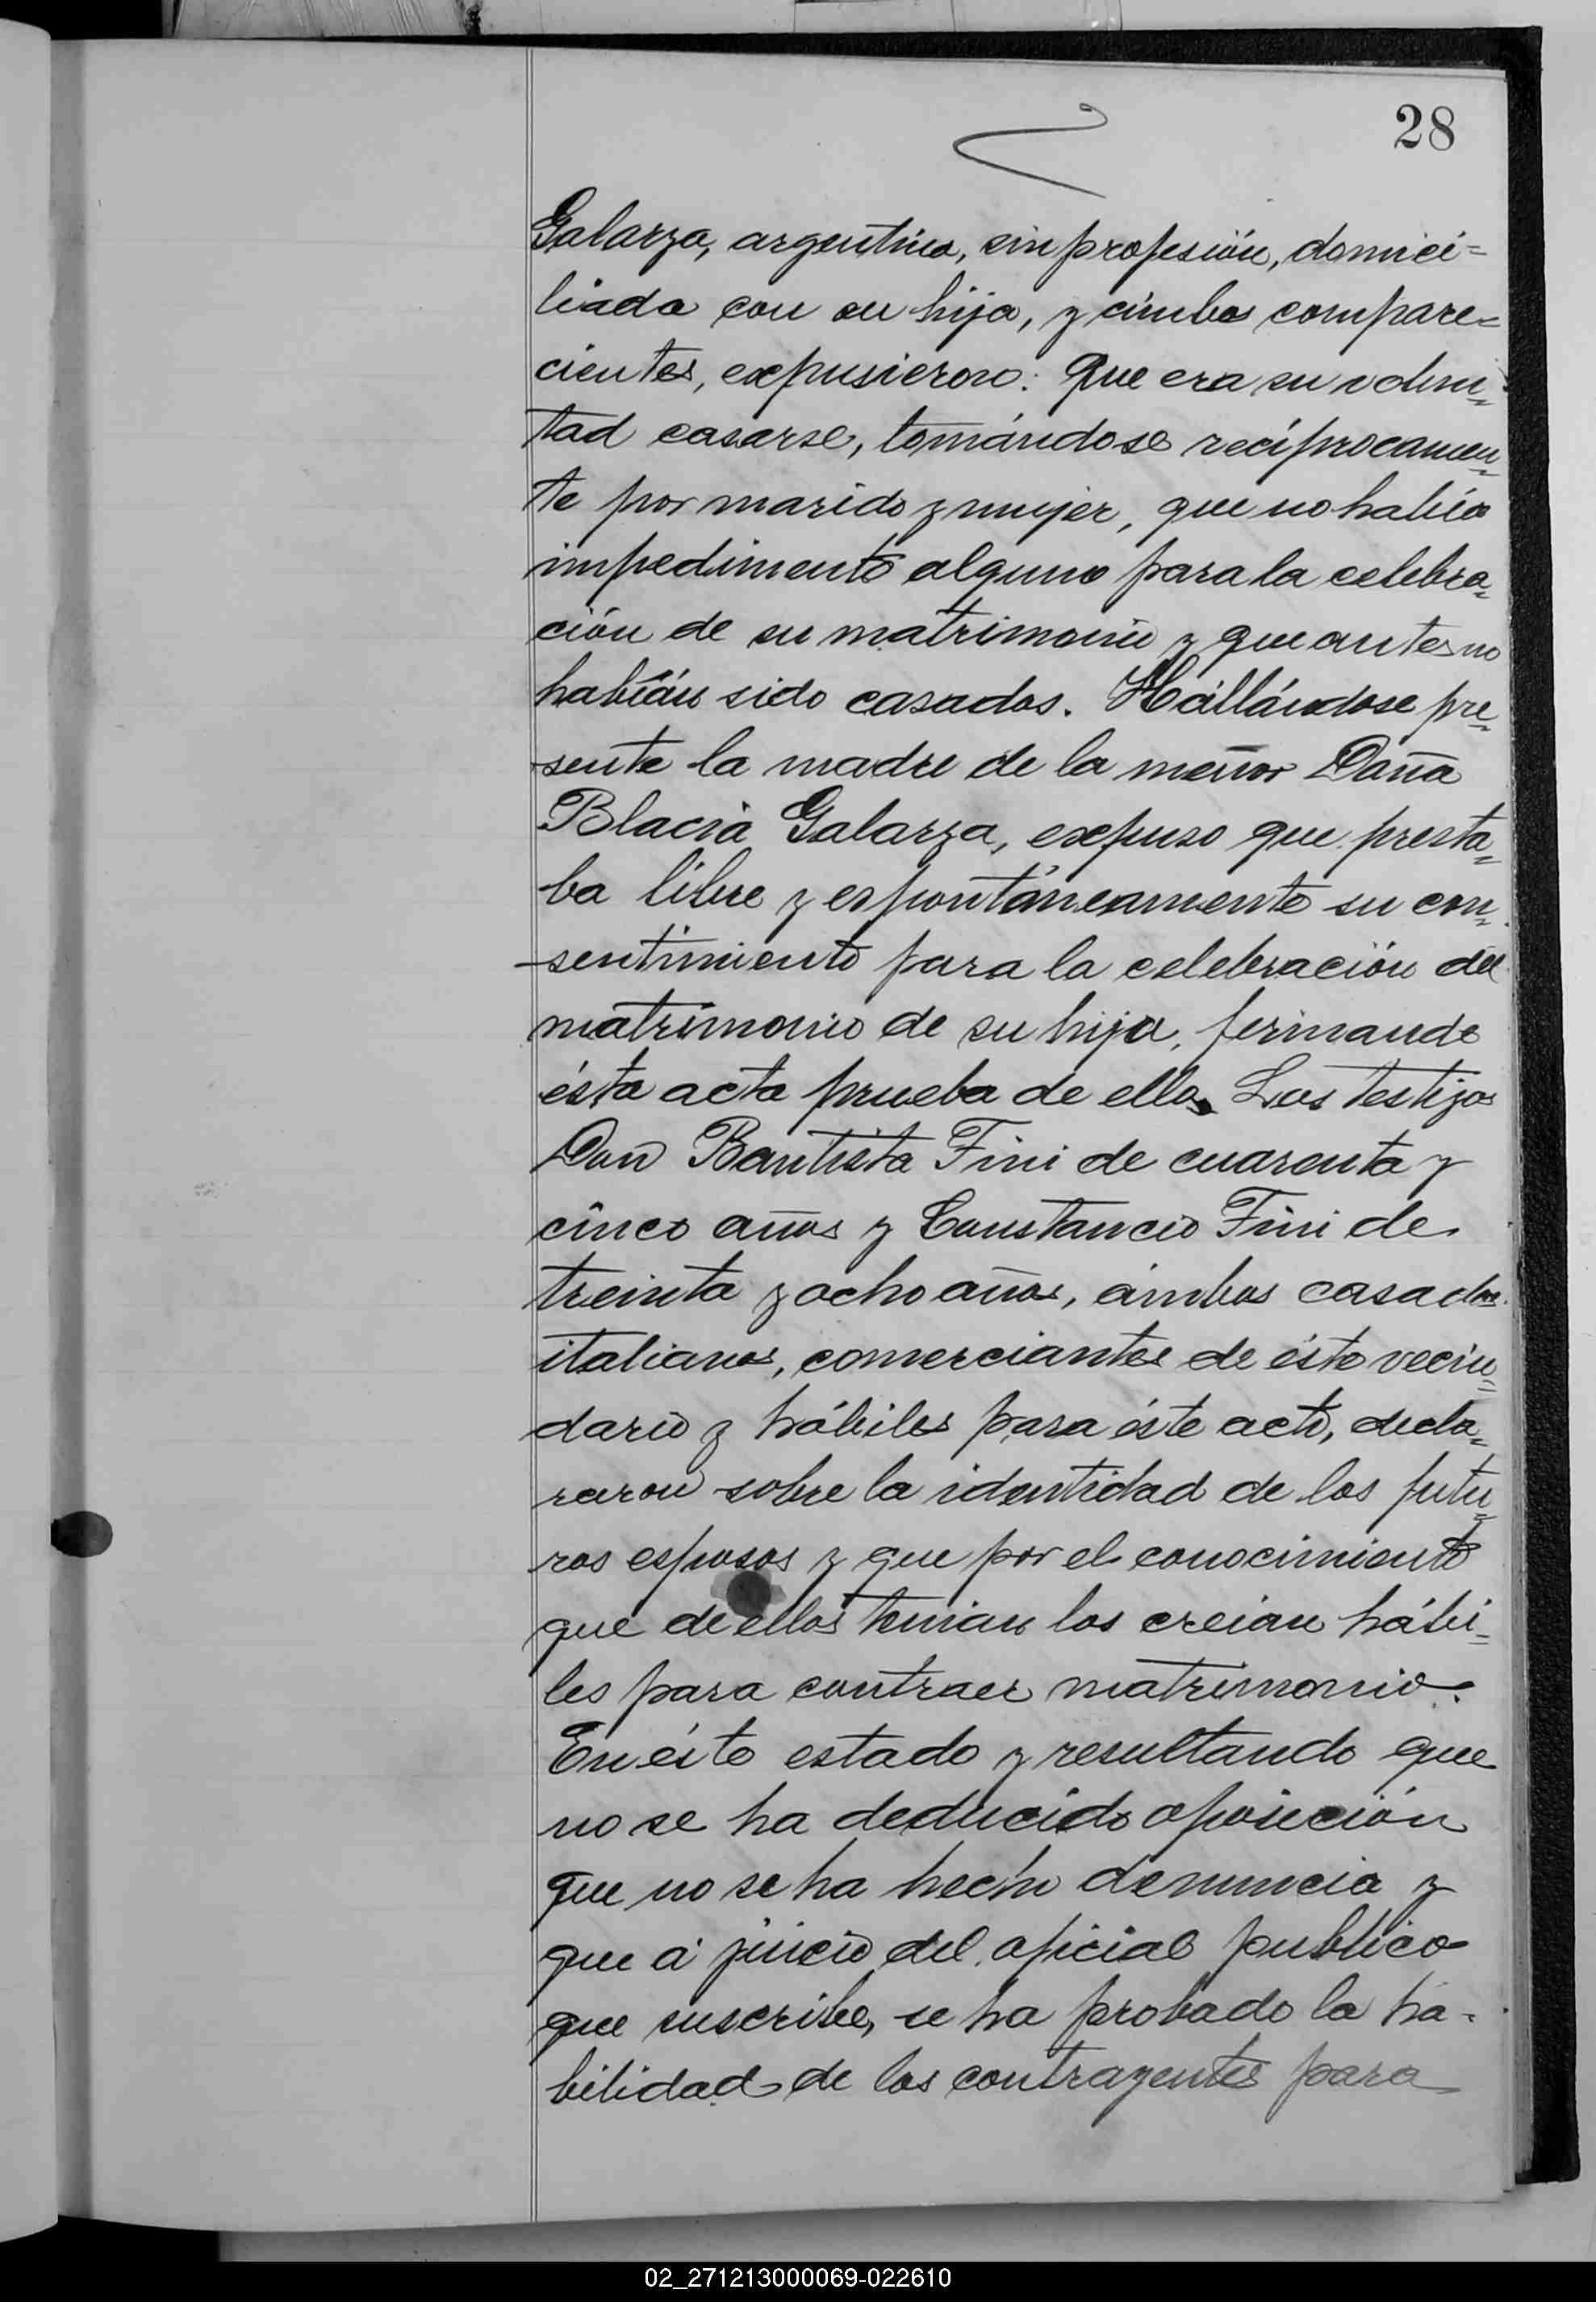 28
Galarza, argentina, sin profesión, domici=
liada con su hija, y ámbos compare=
cientes, expusieron: Que era su volun=
tad casarse, tomándose recíprocamen=
te por marido y mujer, que no había
impedimento alguno para la celebra=
ción de su matrimonio y que antes no
habían sido casados. Hállándose pre=
sente la madre de la menor Doña
Blacia Galarza, expuso que presta=
ba libre y espontáneamente su con=
sentimiento para la celebración del
matrimonio de su hija, firmando
ésta acta prueba de ello. Los testigos
Don Bautista Fini de cuarenta y
cinco años y Constancio Fini de
treinta y ocho años, ámbos casados
italianos, comerciantes de éste vecin=
dario y hábiles para éste acto, decla=
raron sobre la identidad de los futu=
ros esposos y que por el conocimiento
que de ellos tenian los creian hábi=
les para contraer matrimonio.
En éste estado y resultando que
no se ha deducido oposición
que no se ha hecho denuncia y
que á juicio del oficial publico
que suscribe, se ha probado la ha-
bilidad de los contrayentes para
02_271213000069-022610